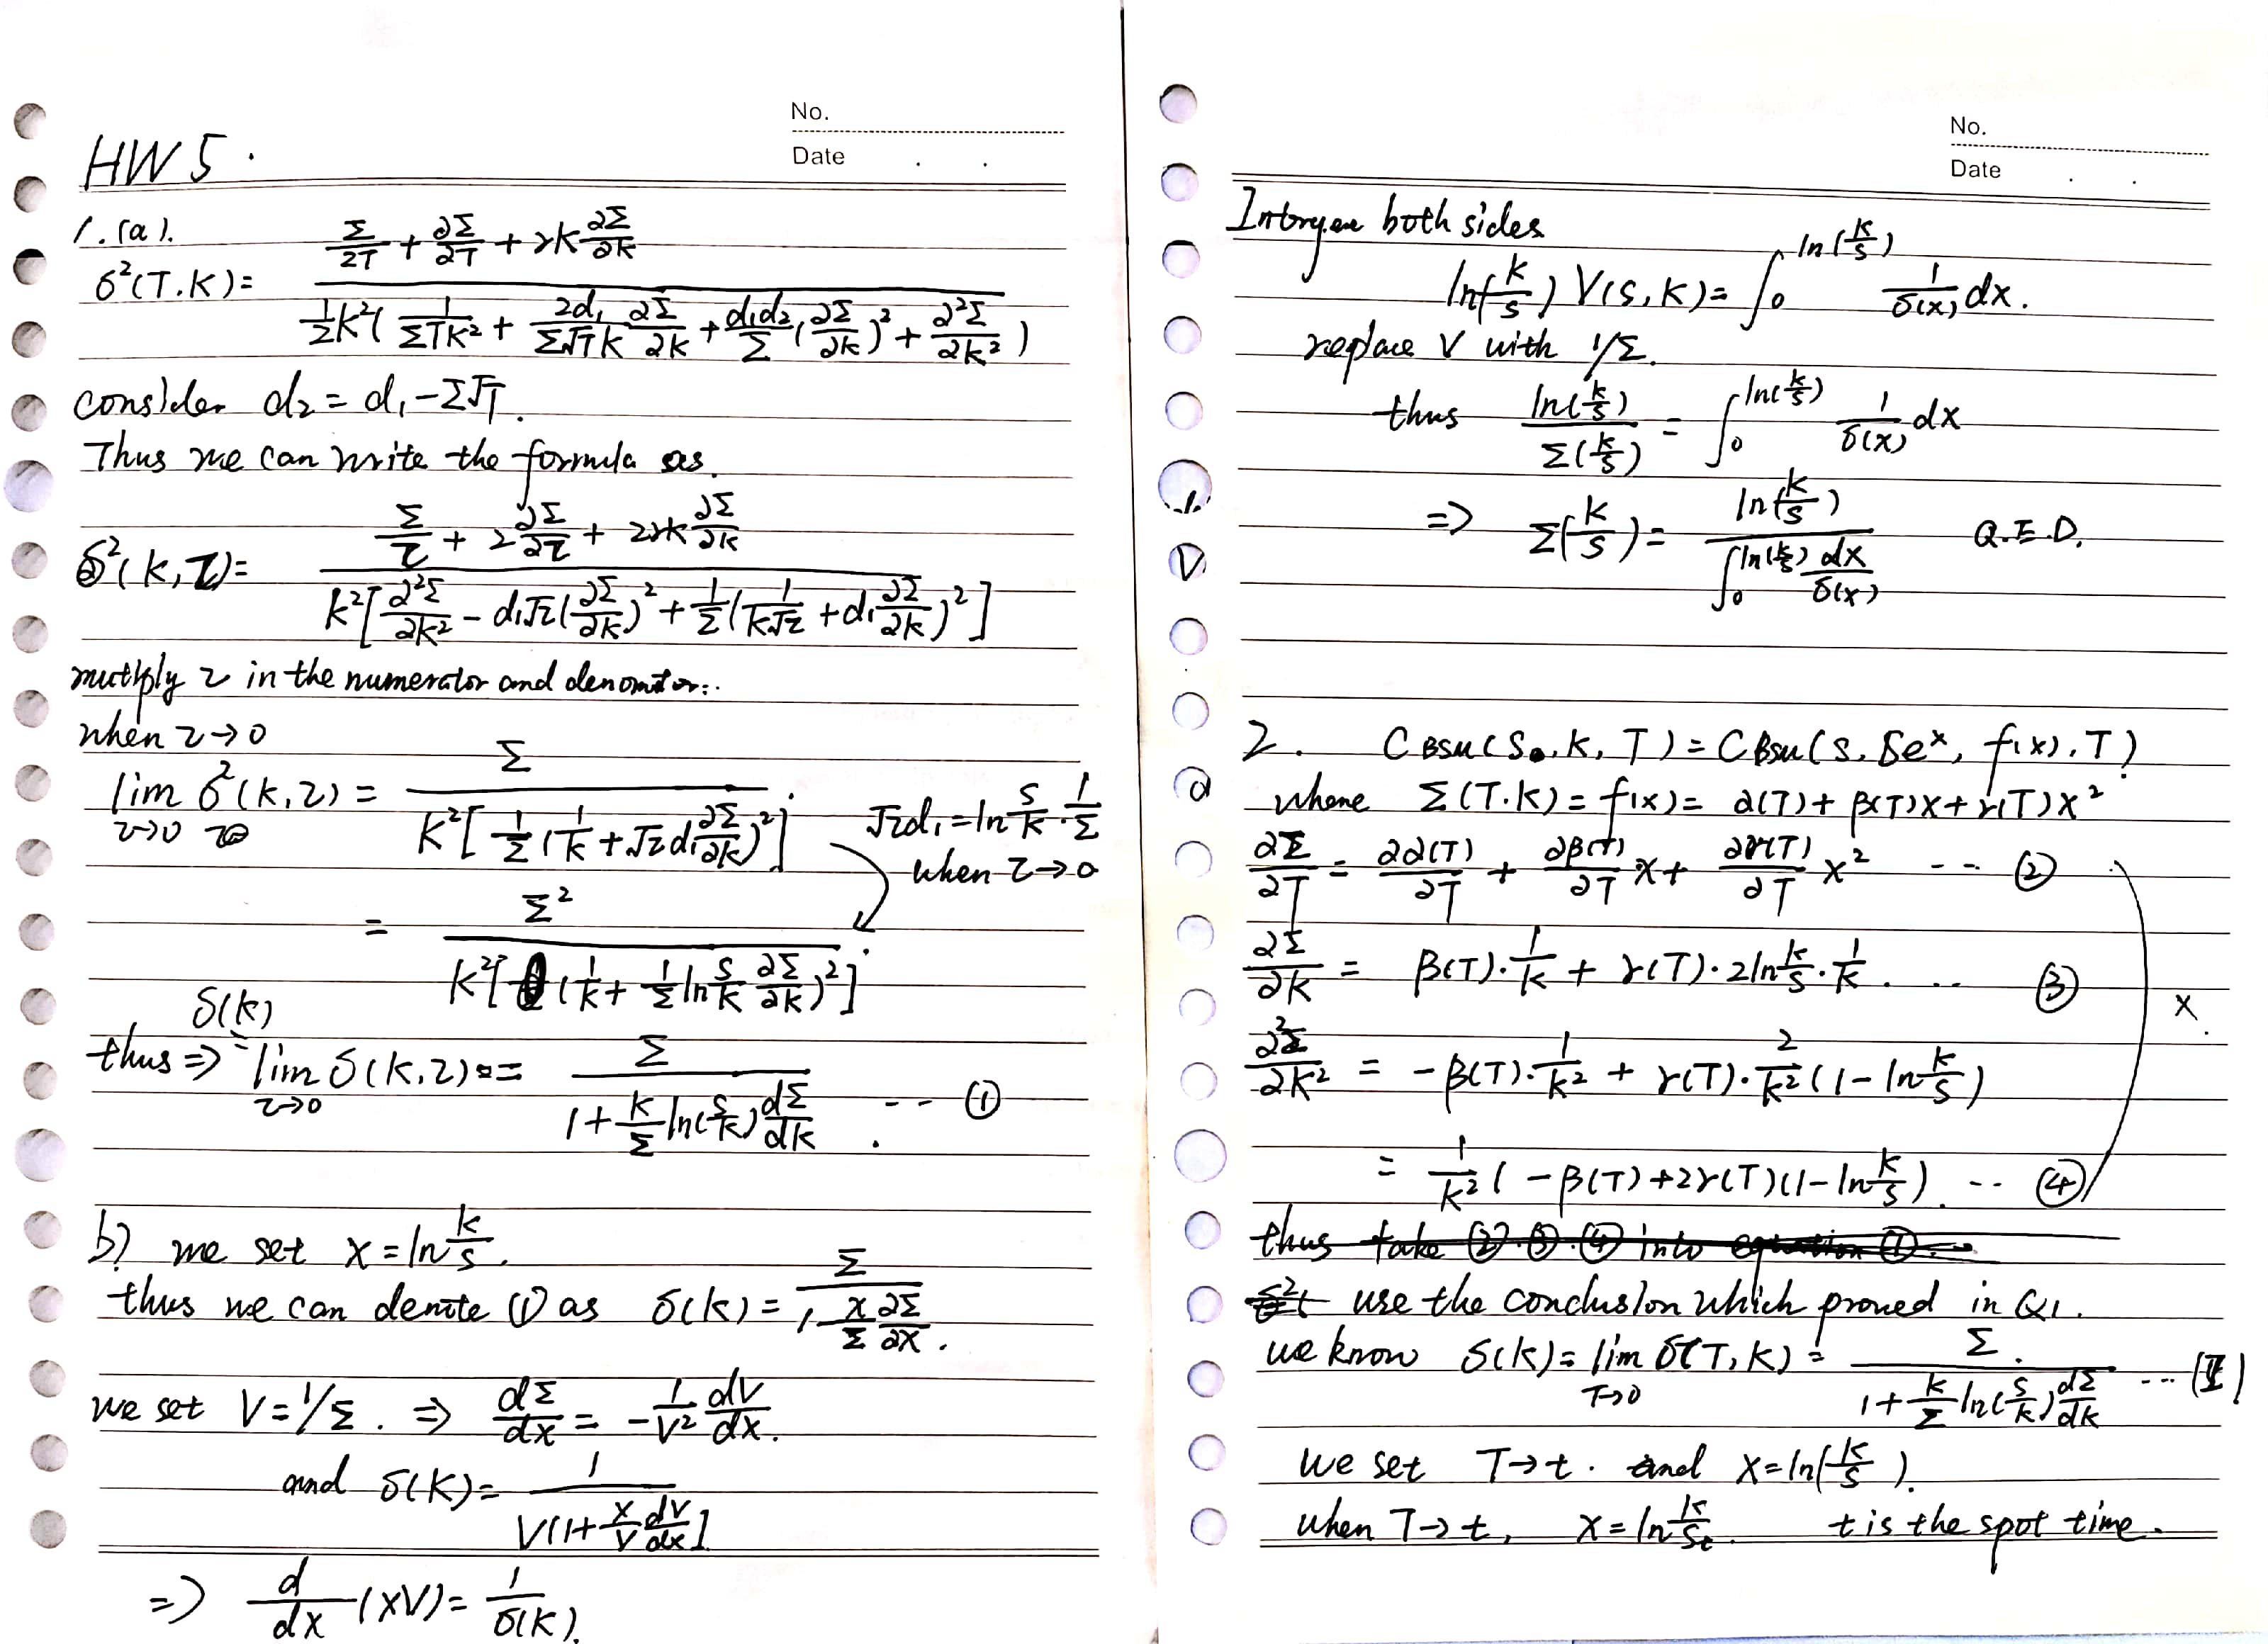 No.
Date . .
HW 5 .
1. (a).
δ²(T.K) = \frac{\frac{Σ}{2T} + \frac{∂Σ}{∂T} + rK\frac{∂Σ}{∂K}}{\frac{1}{2}K²(\frac{1}{ΣTK²} + \frac{2d₁}{Σ√T K}\frac{∂Σ}{∂K} + \frac{d₁d₂}{Σ}(\frac{∂Σ}{∂K})² + \frac{∂²Σ}{∂K²})}
consider d₂ = d₁ - Σ√T.
Thus we can write the formula as.
δ²(K,τ) = \frac{\frac{Σ}{τ} + 2\frac{∂Σ}{∂τ} + 2rK\frac{∂Σ}{∂K}}{K²[\frac{∂²Σ}{∂K²} - d₁√τ(\frac{∂Σ}{∂K})² + \frac{1}{Σ}(\frac{1}{K√τ} + d₁\frac{∂Σ}{∂K})²]}
mutlply τ in the numerator and
when τ→0
\lim_{τ→0} δ²(K,τ) = \frac{Σ}{K²[\frac{1}{Σ}(\frac{1}{K} + √τd₁\frac{∂Σ}{∂K})²]} . √τd₁ = ln\frac{S}{K}·\frac{1}{Σ}
when τ→0
= \frac{Σ²}{K²[(\frac{1}{K} + \frac{1}{Σ}ln\frac{S}{K}\frac{∂Σ}{∂K})²]} .
δ(K)
thus ⇒ = \lim_{τ→0} δ(K,τ) = \frac{Σ}{1 + \frac{K}{Σ}ln(\frac{S}{K})\frac{dΣ}{dK}} . -- ①
b) we set x = ln\frac{K}{S}.
thus we can denote ① as δ(K) = \frac{Σ}{1 - \frac{x}{Σ}\frac{∂Σ}{∂x}} .
we set V = 1/Σ . ⇒ \frac{dΣ}{dx} = -\frac{1}{V²}\frac{dV}{dx}.
and δ(K) = \frac{1}{V[1 + \frac{x}{V}\frac{dV}{dx}]}
⇒ \frac{d}{dx}(xV) = \frac{1}{δ(K)}.
No.
Date . .
both sides
ln(\frac{K}{S}) V(S,K) = ∫_0^{ln(\frac{K}{S})} \frac{1}{δ(x)} dx.
replace V with 1/Σ.
thus \frac{ln(\frac{K}{S})}{Σ(\frac{K}{S})} = ∫_0^{ln(\frac{K}{S})} \frac{1}{δ(x)} dx
⇒ Σ(\frac{K}{S}) = \frac{ln(\frac{K}{S})}{∫_0^{ln(\frac{K}{S})} \frac{dx}{δ(x)}} Q.E.D.
2. C_{BSM}(S, K, T) = C_{BSM}(S, Se^x, f(x), T)
where Σ(T.K) = f(x) = α(T) + β(T)x + γ(T)x²
\frac{∂Σ}{∂T} = \frac{∂α(T)}{∂T} + \frac{∂β(T)}{∂T}x + \frac{∂γ(T)}{∂T}x² -- ②
\frac{∂Σ}{∂K} = β(T)·\frac{1}{K} + γ(T)·2ln\frac{K}{S}·\frac{1}{K}. -- ③ x.
\frac{∂²Σ}{∂K²} = -β(T)·\frac{1}{K²} + γ(T)·\frac{2}{K²}(1 - ln\frac{K}{S})
= \frac{1}{K²}(-β(T) + 2γ(T)(1 - ln\frac{K}{S}). -- ④
thus take ②.③.④ into equation ①.
use the conclusion which proved in Q1.
we know δ(K) = \lim_{T→0} δ(T,K) = \frac{Σ.}{1 + \frac{K}{Σ}ln(\frac{S}{K})\frac{dΣ}{dK}} -- (I)
we set T→t . and x = ln(\frac{K}{S}).
when T→t, x = ln\frac{K}{S_t}. t is the spot time.